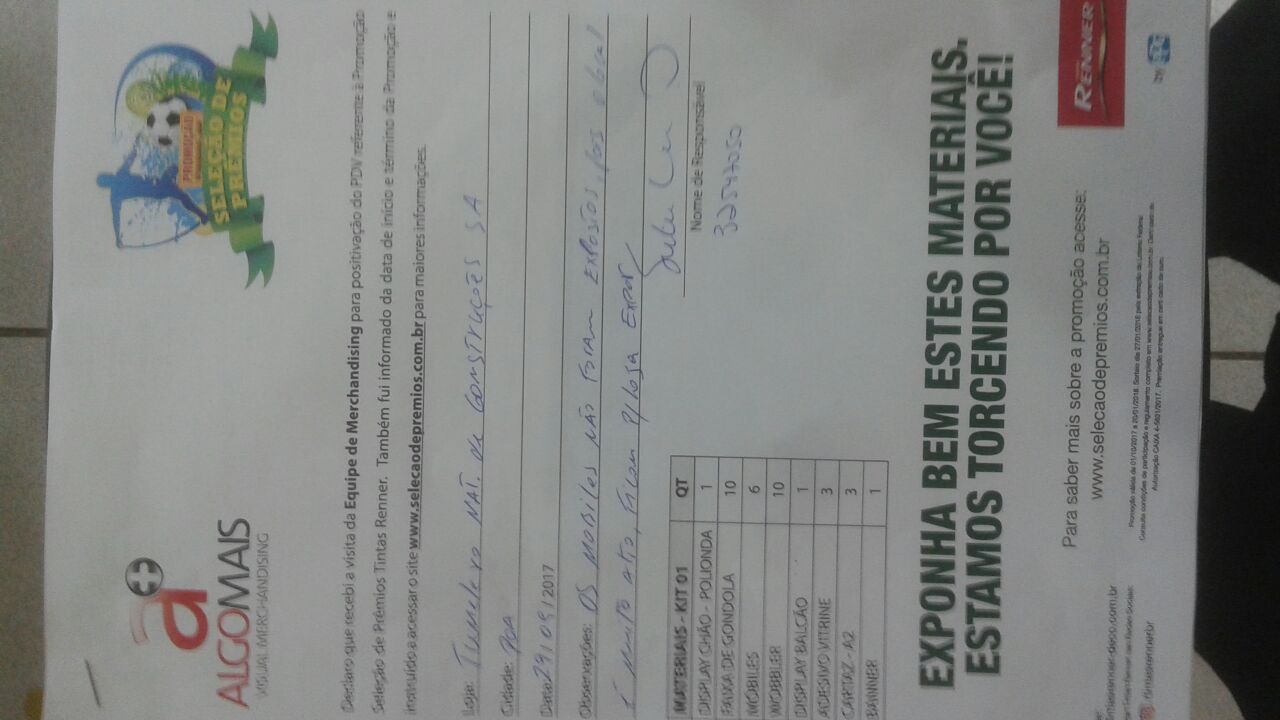 ALGOMAIS
VISUAL MERCHANDISING
PROMOÇÃO
SELEÇÃO DE
PRÊMIOS
Declaro que recebi a visita da Equipe de Merchandising para positivação do PDV referente à Promoção
Seleção de Prêmios Tintas Renner. Também fui informado da data de início e término da Promoção e
instruído a acessar o site www.selecaodepremios.com.br para maiores informações.
Loja: Tumelero MAT. de CONSTRUÇÕES SA
Cidade: POA
Data: 29/09/2017
Observações: OS MOBILES NÃO FORAM EXPOSTOS, pois o local
É muito alto, Ficam P/ Loja EXPOR
Nome de Responsável
32547050
MATERIAIS - KIT 01 QT
DISPLAY CHÃO - POLIONDA 1
FAIXA DE GONDOLA 10
MOBILES 6
WOBBLER 10
DISPLAY BALCÃO 1
ADESIVO VITRINE 3
CARTAZ - A2 3
BANNER 1
EXPONHA BEM ESTES MATERIAIS.
ESTAMOS TORCENDO POR VOCÊ!
Para saber mais sobre a promoção acesse:
www.selecaodepremios.com.br
RENNER
by PPG
Promoção válida de 01/10/2017 a 20/01/2018. Sorteio dia 27/01/2018 pela extração da Loteria Federal.
Consulte condições de participação e regulamento completo em www.selecaodepremios.com.br.
Autorização CAIXA 4-5631/2017. Premiação entregue em
/tintasrenner